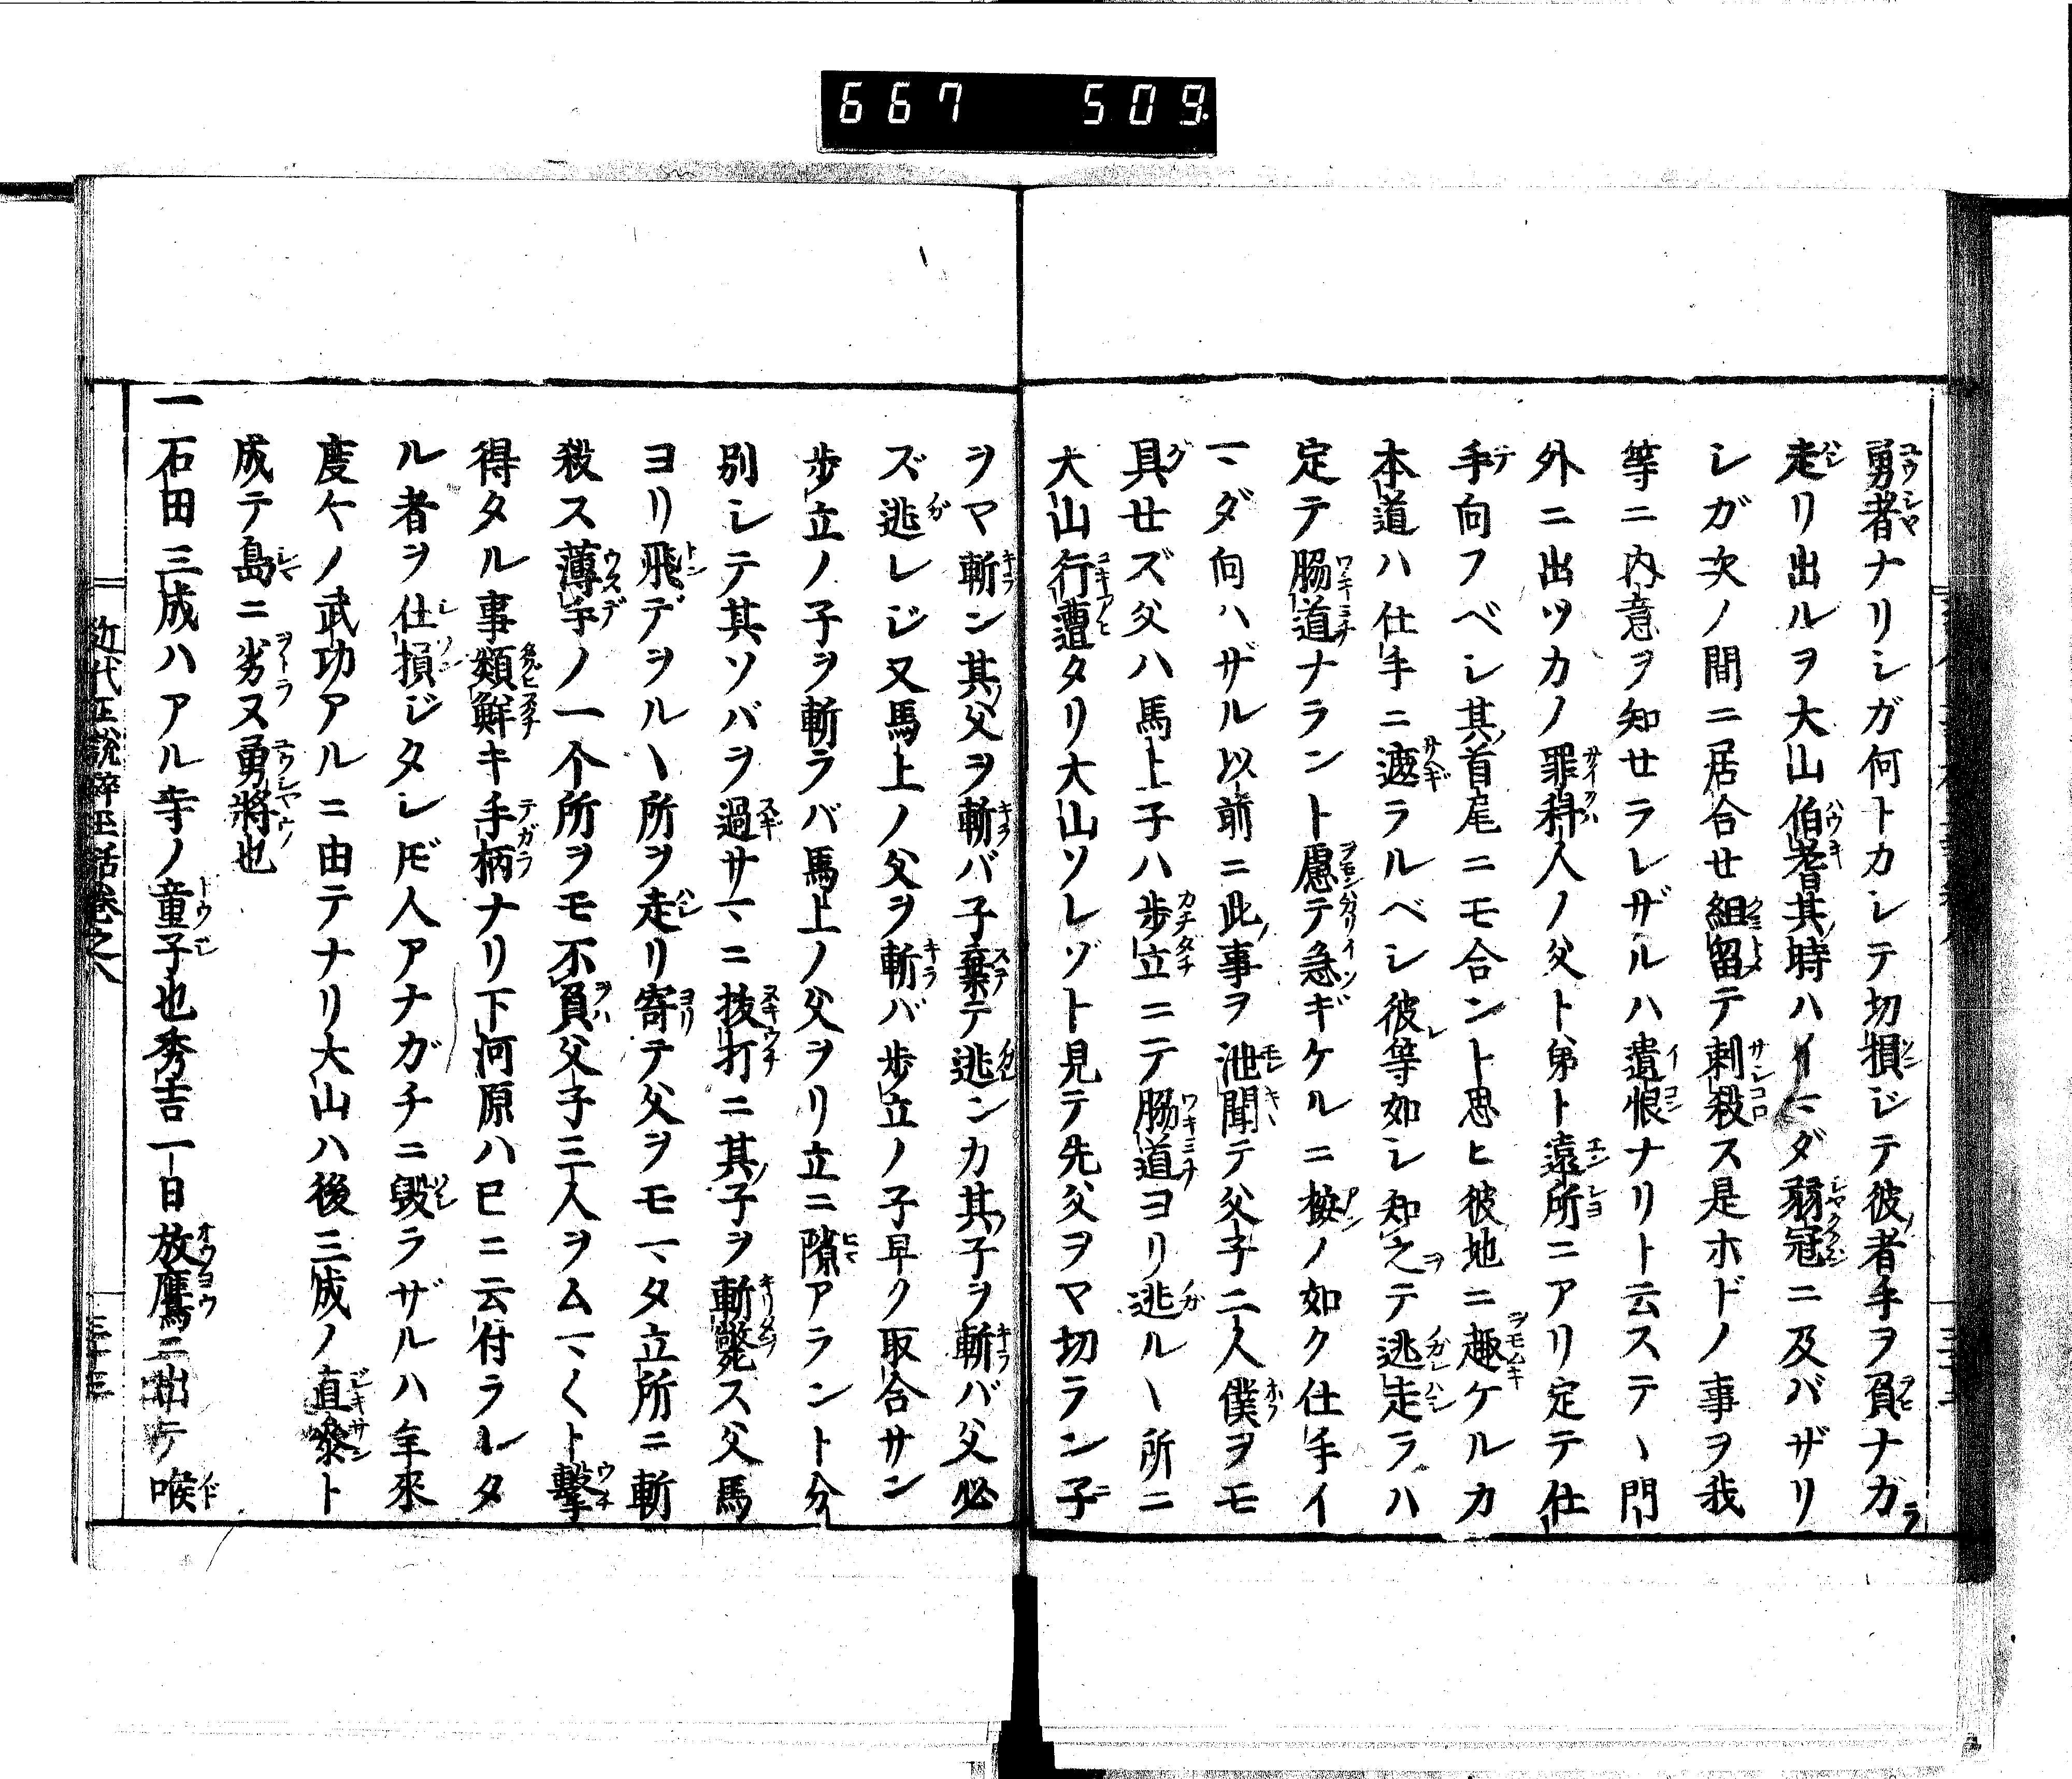 667 509
勇者ナリシガ何トカシテ切損ジテ彼者手ヲ負ナカラ
走リ出ルヲ大山伯耆其時ハイマダ弱冠ニ及バザリ
シガ次ノ間ニ居合せ組留テ刺殺ス是ホドノ事ヲ我
等ニ内意ヲ知せラレザルハ遺恨ナリト云ステヽ門
外ニ出ツカノ罪科人ノ父ト弟ト遠所ニアリ定テ仕
手向フベシ其首尾ニモ合ント思ヒ彼地ニ趣ケルカ
本道ハ仕手ニ遮ラルベシ彼等如シ知之テ逃走ラハ
定テ脇道ナラント慮テ急ギケルニ按ノ如ク仕手イ
マダ向ハザル以前ニ此事ヲ泄聞テ父子二人僕ヲモ
具せズ父ハ馬上子ハ歩立ニテ脇道ヨリ逃ルヽ所ニ
大山行遭タリ大山ソレゾト見テ先父ヲマ切ラン子
ヲマ斬ン其父ヲ斬バ子棄テ逃ンカ其子ヲ斬バ父必
ズ逃レジ又馬上ノ父ヲ斬バ歩立ノ子早ク取合サン
歩立ノ子ヲ斬ラバ馬上ノ父ヲリ立ニ隙アラント分
別シテ其ソバヲ過サマニ抜打ニ其子ヲ斬斃ス父馬
ヨリ飛デヲルヽ所ヲ走リ寄テ父ヲモマタ立所ニ斬
殺ス薄手ノ一个所ヲモ不負父子三人ヲムマ〱ト撃
得タル事類鮮キ手柄ナリ下河原ハ巳ニ云付ラレタ
ル者ヲ仕損ジタレ𪜈人アナガチニ毀ラザルハ年來
度々ノ武功アルニ由テナリ大山ハ後三成ノ直參ト
成テ島ニ劣ヌ勇將也
一石田三成ハアル寺ノ童子也秀吉一日放鷹ニ出テ喉
近代正說碎玉話卷之八
三十三